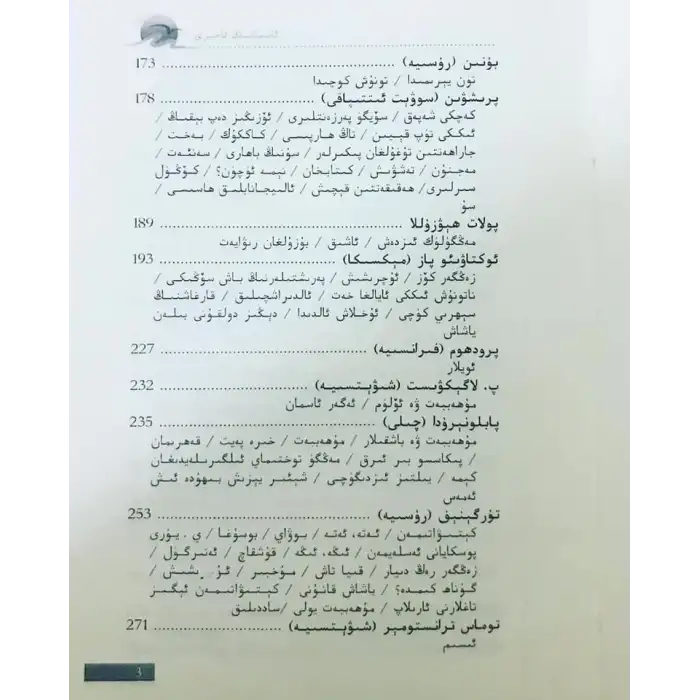 بۇنىن (رۇسىيە) 173
تون يېرىمىدا / تونۇش كوچىدا
پرىشۋىن (سوۋېت ئىتتىپاقى) 178
كەچكى شەپەق / سۆيگۈ پەرزەنتلىرى / ئۆزىڭىز دەپ بېقىڭ /
ئىككى تۈپ قېيىن / تاڭ ھارپىسى / كاككۇك / بەخت /
جاراھەتتىن تۇغۇلغان پىكىرلەر / سۈنىڭ باھارى / سەنئەت /
مەجنۇن / تەشۋىش / كىتابخان / نېمە ئۈچۈن؟ / كۆڭۈل
سىرلىرى/ ھەقىقەتتىن قېچىش / ئالىيجانابلىق ھاسىسى /
سۇ
پولات ھېۋزۇللا 189
مەڭگۈلۈك ئىزدەش / ئاشىق / بۇزۇلغان رىۋايەت
ئوكتاۋىئو پاز (مېكسىكا) 193
زەڭگەر كۆز / ئۇچرىشىش / پەرىشتىلەرنىڭ باش سۆڭىكى /
ناتونۇش ئىككى ئايالغا خەت / ئالدىراشچىلىق / قارغاشنىڭ
سېھرىي كۈچى / ئۇخلاش ئالدىدا / دېڭىز دولقۇنى بىلەن
ياشاش
پرودھوم (فىرانسىيە) 227
ئويلار
پ. لاگېكۋىست (شىۋېتسىيە) 232
مۇھەببەت ۋە ئۆلۈم / ئەگەر ئاسمان
پابلونېرۇدا (چىلى) 235
مۇھەببەت ۋە باشقىلار / مۇھەببەت / خىرە پەيت / قەھرىمان
/ پىكاسسو بىر ئىرق / مەڭگۈ توختىماي ئىلگىرىلەيدىغان
كېمە / يىلتىز ئىزدىگۈچى / شېئىر يېزىش بىھۇدە ئىش
ئەمەس
تۇرگېنېۋ (رۇسىيە) 253
كېتىۋاتىمەن / ئەتە، ئەتە / بوۋاي / بوسۇغا / ي . يۈرى
پوسكايانى ئەسلەيمەن / ئىگە، ئىگە / قۇشقاچ / ئەتىرگۈل /
زەڭگەر رەڭ دىيار / قىيا تاش / مۇخبىر /
گۇناھ كىمدە؟ / ياشاش قانۇنى / كېتىۋاتىمەن ئېگىز
تاغلارنى ئارىلاپ / مۇھەببەت يولى /ساددىلىق
توماس ترانستومېر (شىۋېتسىيە) 271
ئىسىم
3